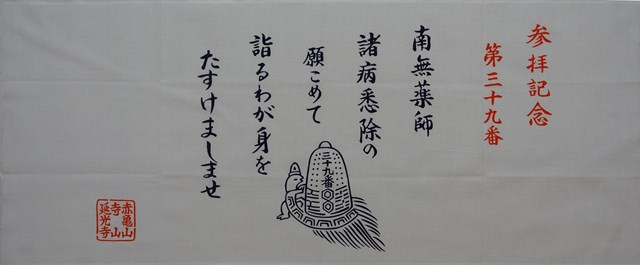 参拝記念
第三十九番
南無薬師
諸病悉除の
願こめて
詣るわが身を
たすけましませ
三十九番
赤亀山
寺山
延光寺